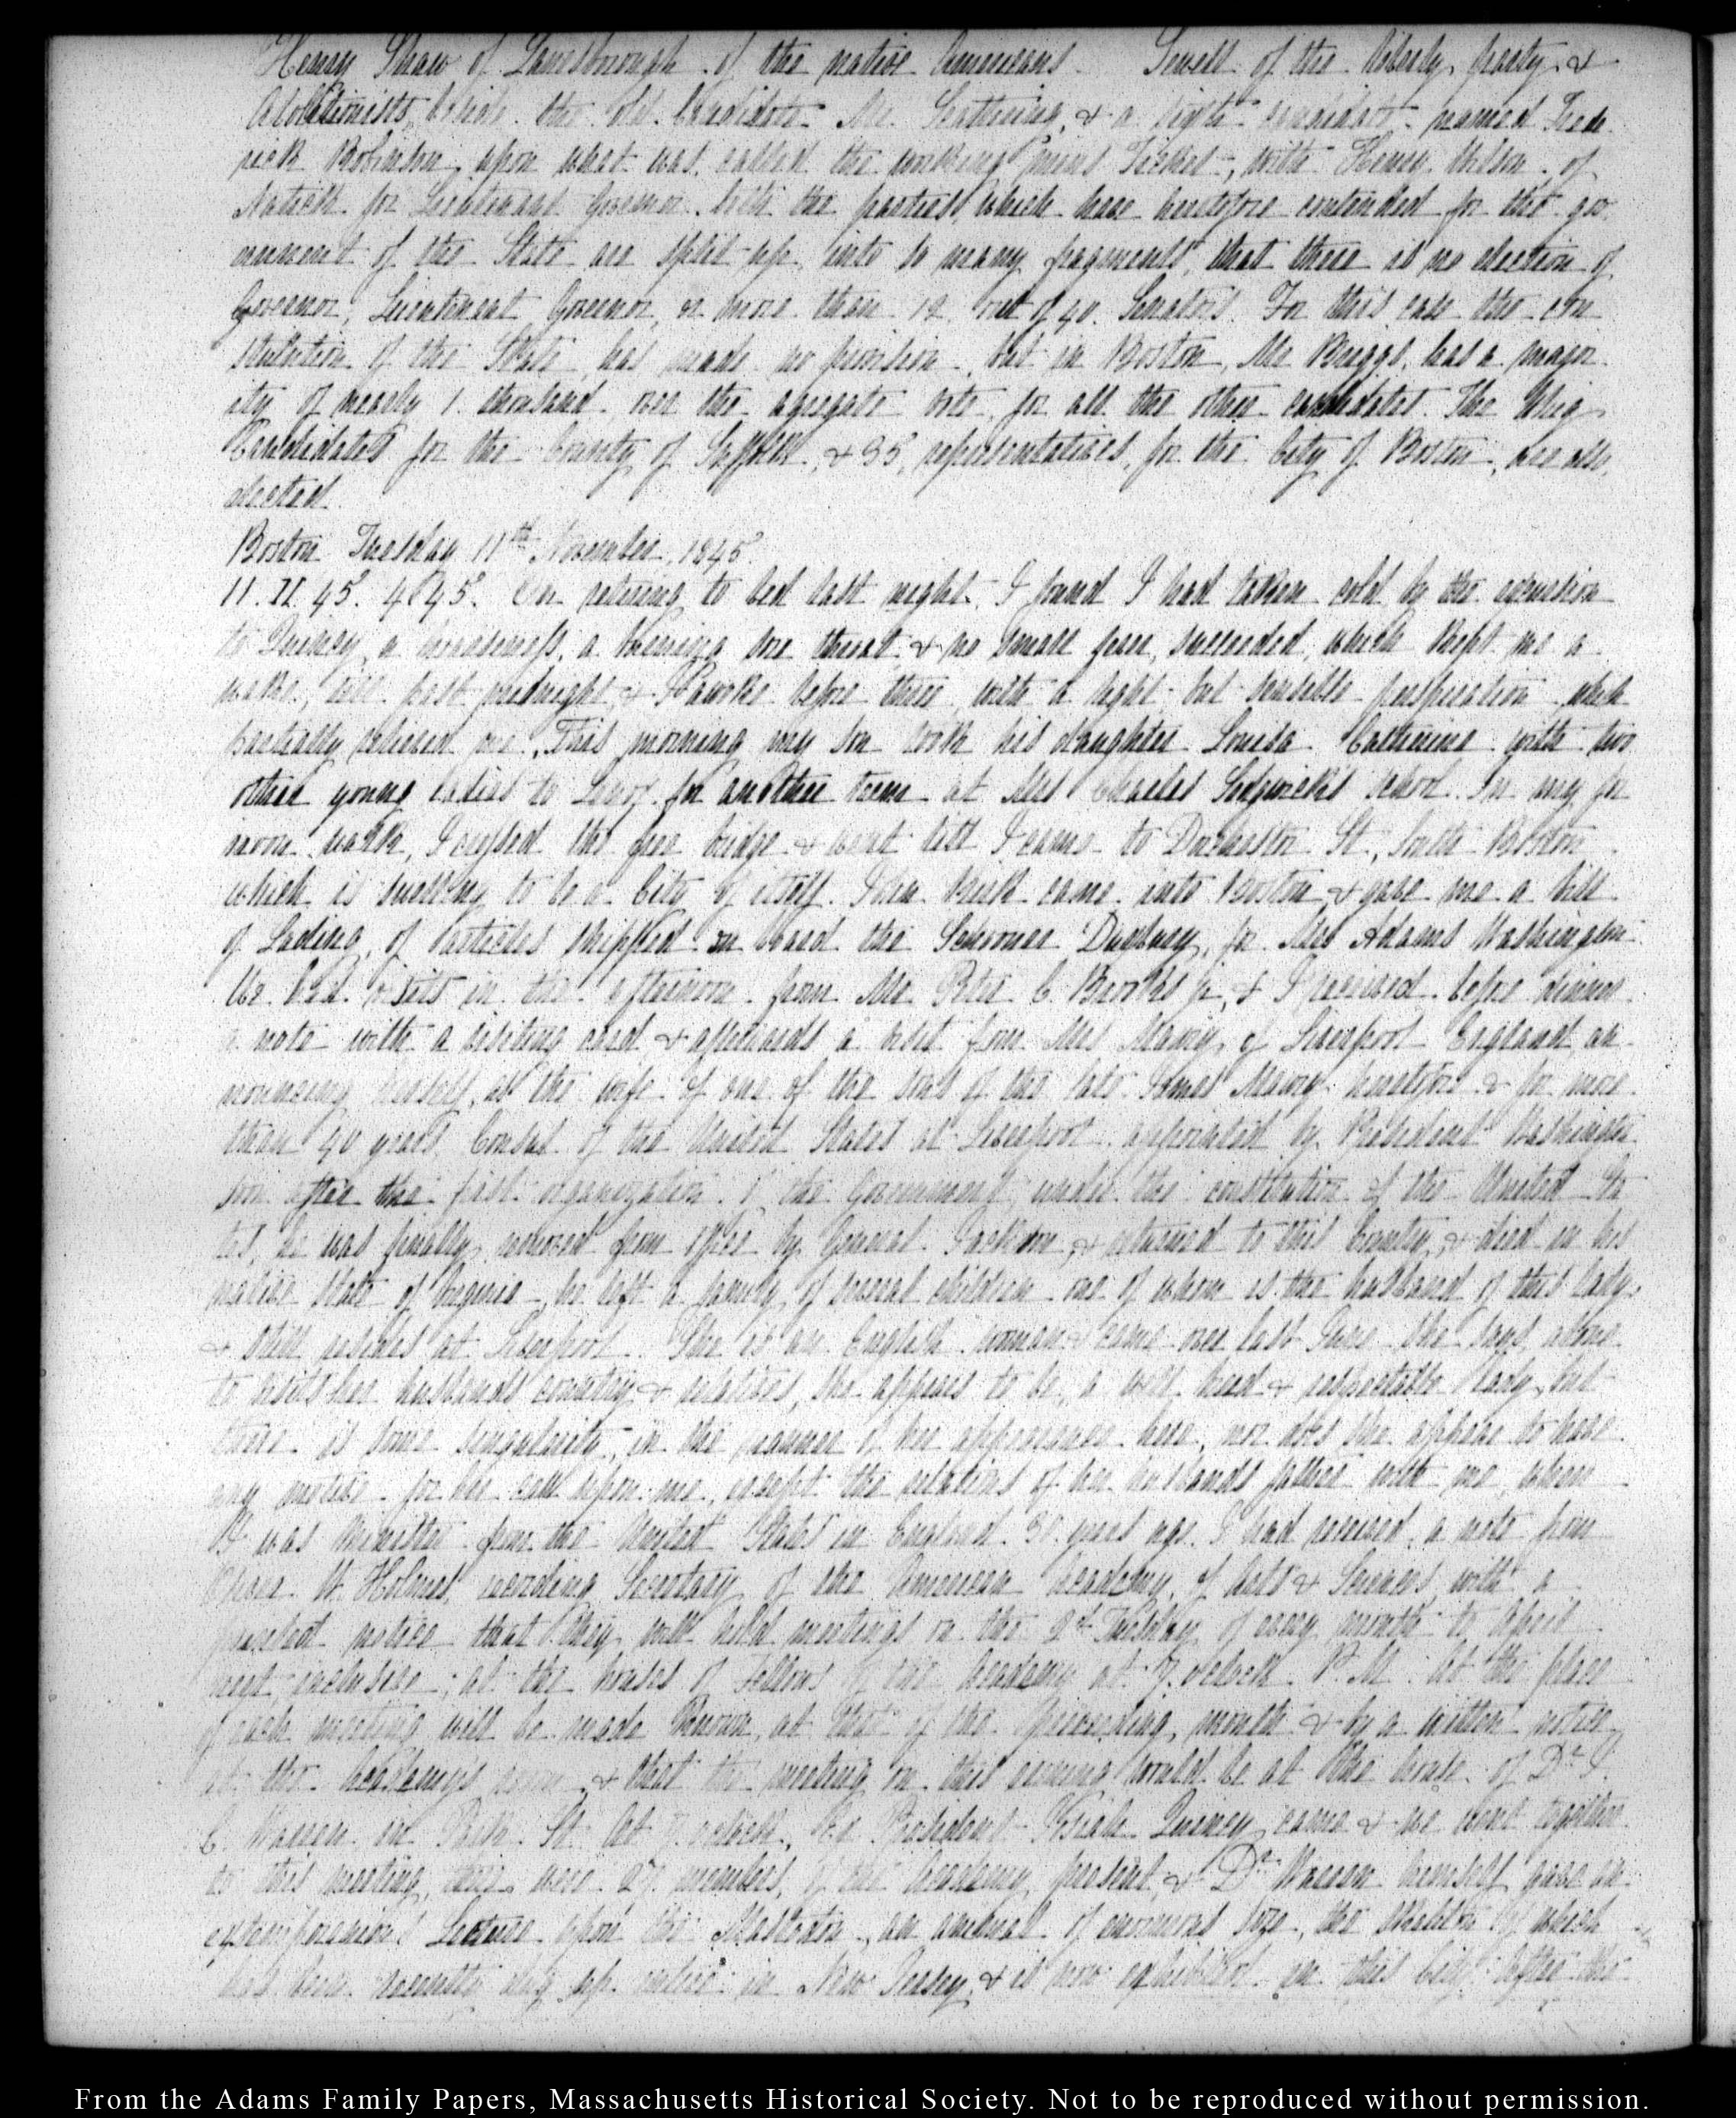 Henry Shaw of Lanesborough of the native Americans. Sewell of the liberty party &
Abolitionists, beside the old Candidate Mr. & a candidate named Frede
rick Robinson, upon what was called the working mens Ticket, with Henry Wilson of
Natick for Lieutenant Governor. both the parties, which have heretofore contended for the gov
ernment of the State are split up into so many fragments, that there is no election of
Governor, Lieutenant Governor, or more than 12 out of 40. Senators. For this case the con
stitution of the State, has made no provision, but in Boston, Mr Briggs, has a major
ity of nearly 1 thousand over the agregate vote, for all the other candidates. The Whig
Candidates for the County of Suffolk, & 35, representatives, for the City of Boston, are also,
elected.
Boston Tuesday 11th November, 1845.
11. II. 45. 4 45. On retiring to bed last night, I found I had taken cold by the excursion
to Quincy, a hoarseness, a burning sore throat, & no small fever, succeeded, which kept me a
wake, till past midnight, & I awoke before three with a light but sensible perspiration which
partially relieved me. This morning my son took his daughter Louisa Catherine with two
other young ladies to Lenox for another term at Mrs Charles Sedgwick's school. In my fore
noon walk, I crossed the free bridge & went till I came to Dorchester St, South Boston
which is swelling to be a City of itself. John Kirk came into Boston, & gave me a bill
of Lading, of articles shipped on board the Schooner Duxbury, for Mrs Adams Washington.
We had visits in the afternoon from Mr Peter C. Brooks jr, & I received before dinner
a note with a visiting card & afterwards a visit from Mrs Maury of Liverpool England, an
nouncing herself, as the wife of one of the sons of the late James Maury heretofore & for more
than 40 years, Consul of the United States at Liverpool appointed by President Washington
soon after the first organization of the Government, under the constitution of the United Sta
tes, he was finally removed from office by General Jackson, & returned to this Country, & died in his
native State of Virginia, he left a family of several children one of whom is the husband of this lady,
& still resides at Liverpool. She is an English woman & came over last June she says alone
to visit her husbands country & relatives, she appears to be, a well bred & respectable lady, but
there is some singularity, in the manner of her appearance here, nor does she appear to have
any motive for her call upon me, except the relations of her husbands father with me, when
I was Minister from the United States in England 30 years ago. I had received, a note from
W. Holmes, recording Secretary of the American Academy, of Arts & Sciences, with a
printed notice that they will hold meetings on the 2d Tuesday of every month to April
next inclusive; at the houses of Fellows of the Academy at 7. oclock. P. M. At the place
of each meeting will be made known, at that of the preceeding, month & by a written notice
at the Academys room, & that the meeting on this evening would be at the house of Dr J.
C. Warren in Park St. At 7 oclock, Ex President Josiah Quincy came & we went together
to this meeting, there were 27 members, of the Academy, present, & Dr Warren himself gave an
extemporaneous Lecture upon the Mastodon, an animal of enormous size, the skeleton of which
has been recently dug up entire in New Jersey, & is now exhibited in this City. After the
From the Adams Family Papers, Massachusetts Historical Society. Not to be reproduced without permission.